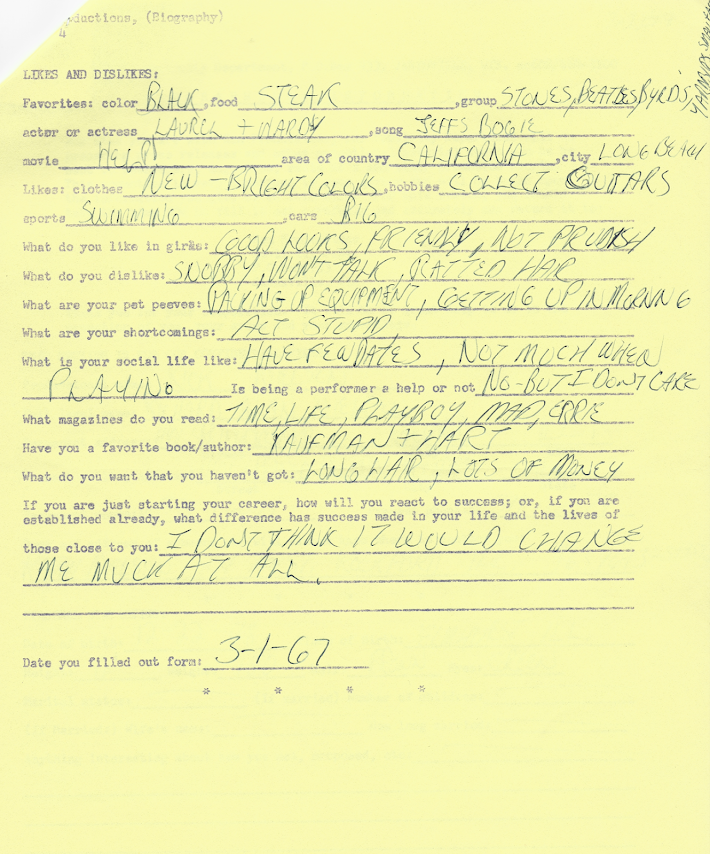 ductions, (Biography)
4
LIKES AND DISLIKES:
Favorites: color BLACK, food STEAK, group STONES, BEATLES, BYRDS,
YARDBIRDS
actor or actress LAUREL + HARDY, song JEFFS BOGIE
movie HELP! area of country CALIFORNIA, city LONG BEACH
Likes: clothes NEW - BRIGHT COLORS, hobbies COLLECT GUITARS
sports SWIMMING, cars BIG
What do you like in girls: GOOD LOOKS, FRIENDLY, NOT PRUDISH
What do you dislike: SNOBBY, WONT TALK, RATTED HAIR
What are your pet peeves: PACKING UP EQUIPMENT, GETTING UP IN MORNING
What are your shortcomings: ACT STUPID,
What is your social life like: HAVE FEW DATES, NOT MUCH WHEN
PLAYING Is being a performer a help or not NO-BUT I DONT CARE
What magazines do you read: TIME, LIFE, PLAYBOY, MAD, EERIE
Have you a favorite book/author: KAUFMAN + HART
What do you want that you haven't got: LONG HAIR, LOTS OF MONEY
If you are just starting your career, how will you react to success; or, if you are
established already, what difference has success made in your life and the lives of
those close to you: I DON'T THINK IT WOULD CHANGE
ME MUCH AT ALL.
Date you filled out form: 3-1-67
* * * *